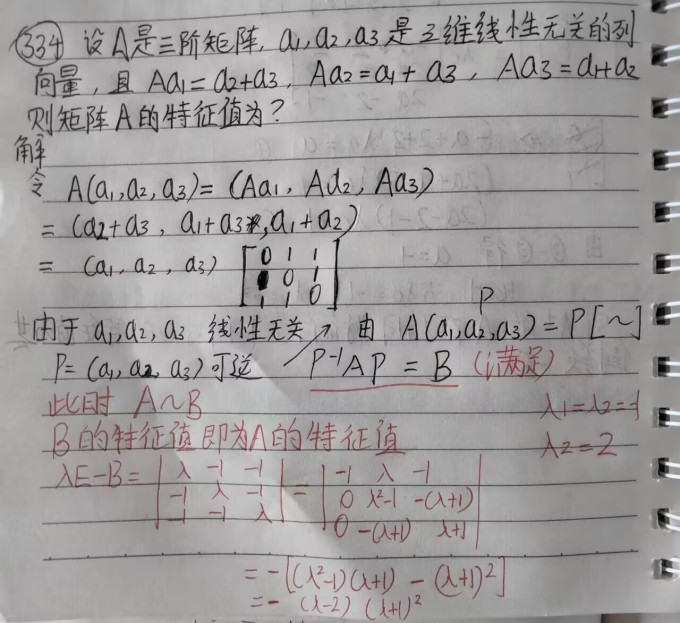 334 设A是三阶矩阵, a1,a2,a3是三维线性无关的列
向量,且 Aa1=a2+a3, Aa2=a1+a3, Aa3=a1+a2
则矩阵A的特征值为?
解
令 A(a1,a2,a3)=(Aa1, Aa2, Aa3)
=(a2+a3, a1+a3, a1+a2)
= (a1, a2, a3) [0 1 1
1 0 1
1 1 0]
由于 a1,a2,a3 线性无关 ↗ 由 A(a1,a2,a3)=P[~]
P
P=(a1, a2, a3)可逆 P⁻¹AP=B (满足)
此时 A~B λ1=λ2=-1
B的特征值即为A的特征值 λ2=2
λE-B= |λ -1 -1
-1 λ -1
-1 -1 λ| = |-1 λ -1
0 λ²-1 -(λ+1)
0 -(λ+1) λ+1|
=-[(λ²-1)(λ+1)-(λ+1)²]
=-(λ-2)(λ+1)²